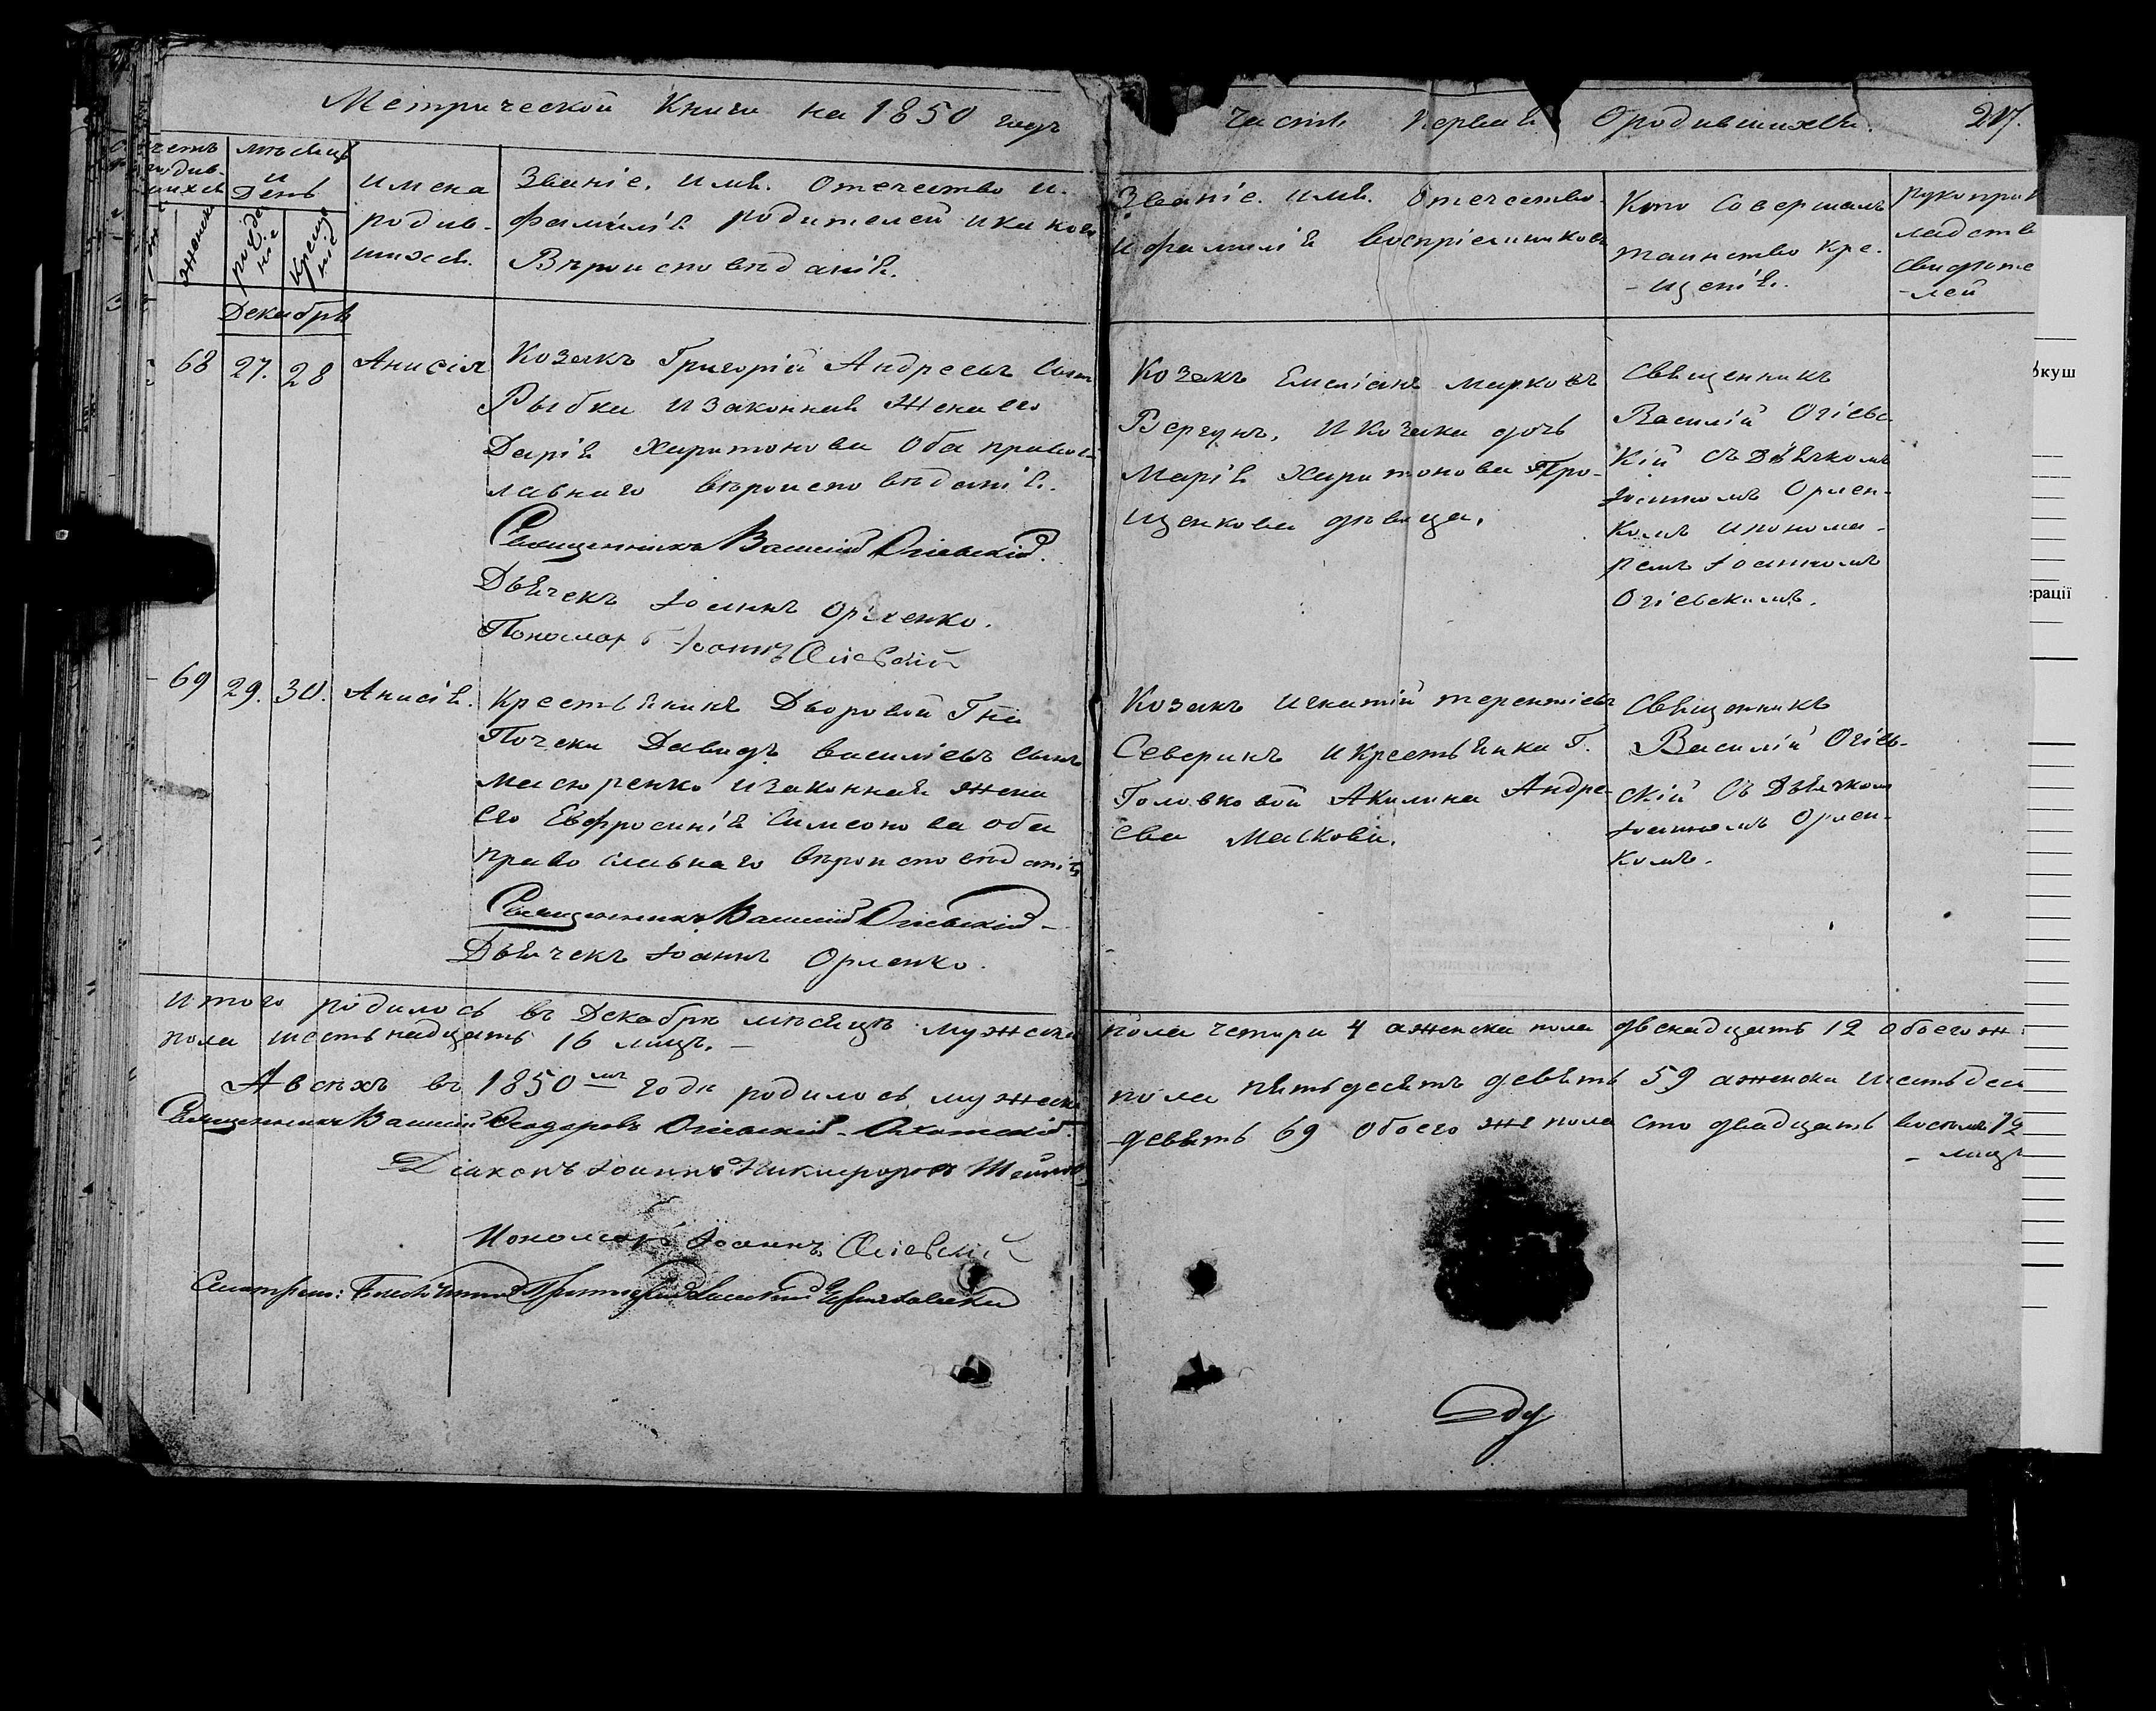 Метрической Книги на 1850 годъ
Часть Первая Ородившихся. 217.
мѣсяцъ
и
День
женска
рожденіе
крещеніе
имена
родив-
шихся.
Званіе. Имя. Отечество и.
фамилія родителей и какого
Вѣроисповѣданія.
Званіе. Имя. Отечество.
и фамилія Воспріемниковъ
Кто Совершалъ
таинство кре-
-щенія.
рукопри
ладств
свидѣте
-лей
Декабрь
68 27. 28 Анисія
Козакъ Григорій Андреевъ Сынъ
Рыбка и законная Жена его
Дарія Харитонова Оба правос
лавнаго вѣроисповѣданія.
Священникъ Василій Огіевскій.
Дьячекъ Іоаннъ Орленко.
Пономарь Іоаннъ Огіевскій
Козакъ Емеліанъ Марковъ
Вергунъ, И Козака дочь
Марія Харитонова Про-
щенкова дѣвица.
Священникъ
Василій Огіевс
кій съ Дьячкомъ
Іоанномъ Орлен-
комъ и понома-
ремъ Іоанномъ
Огіевскимъ.
69 29. 30. Анисія.
Крестьянинъ Дворовой Гна
Почеки Давидъ Василіевъ сынъ
Масюренко и законная жена
его Евфросинія Симеонова оба
православнаго вѣроисповѣданія
Священникъ Василій Огіевскій
Дьячекъ Іоаннъ Орленко.
Козакъ Игнатій терентіевъ
Северинъ и Крестьянка Г.
Головковой Акилина Андре-
ева Маскова.
Священникъ
Василій Огіев-
скій Съ Дьячкомъ
Іоанномъ Орлен-
комъ.
итого родилось въ Декабрѣ мѣсяцѣ мужеска
пола четыри 4 аженска пола двенадцать 12 обоего ж
пола шестьнадцать 16 лицъ.
А всѣхъ въ 1850мъ годѣ родилось мужеска
пола пятьдесятъ девять 59 аженска шестьдес
девять 69 обоего же пола сто двадцать восемь 12
- лицъ
Священникъ Василій Феодоровъ Огіевскій-Охотскій
Діаконъ Іоаннъ Никифоровъ
Пономарь Іоаннъ Огіевскій
Смотрелъ: Благочинный Протоіерей
куш
ерації